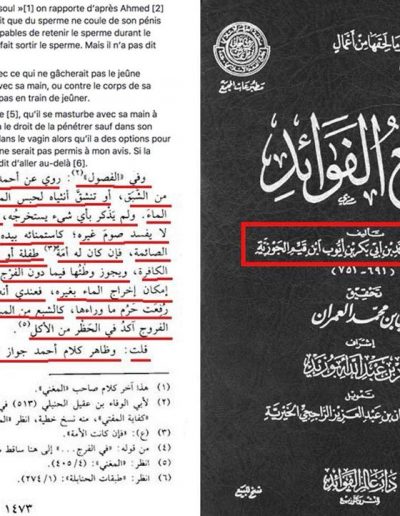 soul »[1] on rapporte d'après Ahmed [2]
t que du sperme ne coule de son pénis
pables de retenir le sperme durant le
fait sortir le sperme. Mais il n'a pas dit
ec ce qui ne gâcherait pas le jeûne
vec sa main, ou contre le corps de sa
pas en train de jeûner.
e [5], qu'il se masturbe avec sa main à
n le droit de la pénétrer sauf dans son
dans le vagin alors qu'il a des options pour
ne serait pas permis à mon avis. Si la
dit d'aller au-delà [6].
وفي «الفصول»(٢): روي عن أحمد
من الشبَق، أو تنشقَّ أنثياه لحبس الم
الماءَ. ولم يَذْكر بأي شيءٍ يستخرجه،
لا يفسد صومَ غيره؛ كاستمنائه بيده
الصائمة، فإن كان له أمة(٣) طفلة أو
الكافرة، ويجوز وطئها فيما دون الفرج
إمكان إخراج الماء بغيره، فعندي أنه
رُفعَت حَرُم ما وراءها، كالشبع من الم
الفروج آكد في الحَظْر من الأكل(٥).
قلت: وظاهر كلام أحمد جواز
(١) هذا آخر كلام صاحب «المغني».
(٢) لأبي الوفاء بن عقيل الحنبلي (٥١٣)
«كفاية المفتي»، منه نسخ خطية،
(٣) (ع): «فإن كانت الأمة».
(٤) من قوله: «في الفرج... إلى هنا ساقط
(٥) انظر: «المغني»: (٤/ ٤٠٥).
(٦) انظر: «طبقات الحنابلة»: (١/ ٢٧٤).
١٤٧٣
يا لحقها من أعمال
مطبوعات المجمع
ع الفوائد
تأليف
بن أبي بكر بن أيوب ابن قيم الجوزية
(٦٩١ - ٧٥١)
تحقيق
بن محمد العمران
إشراف
بن عبد الله أبو زيد
تمويل
ن بن عبد العزيز الراجحي الخيرية
دار عالم الفوائد
للنشر والتوزيع